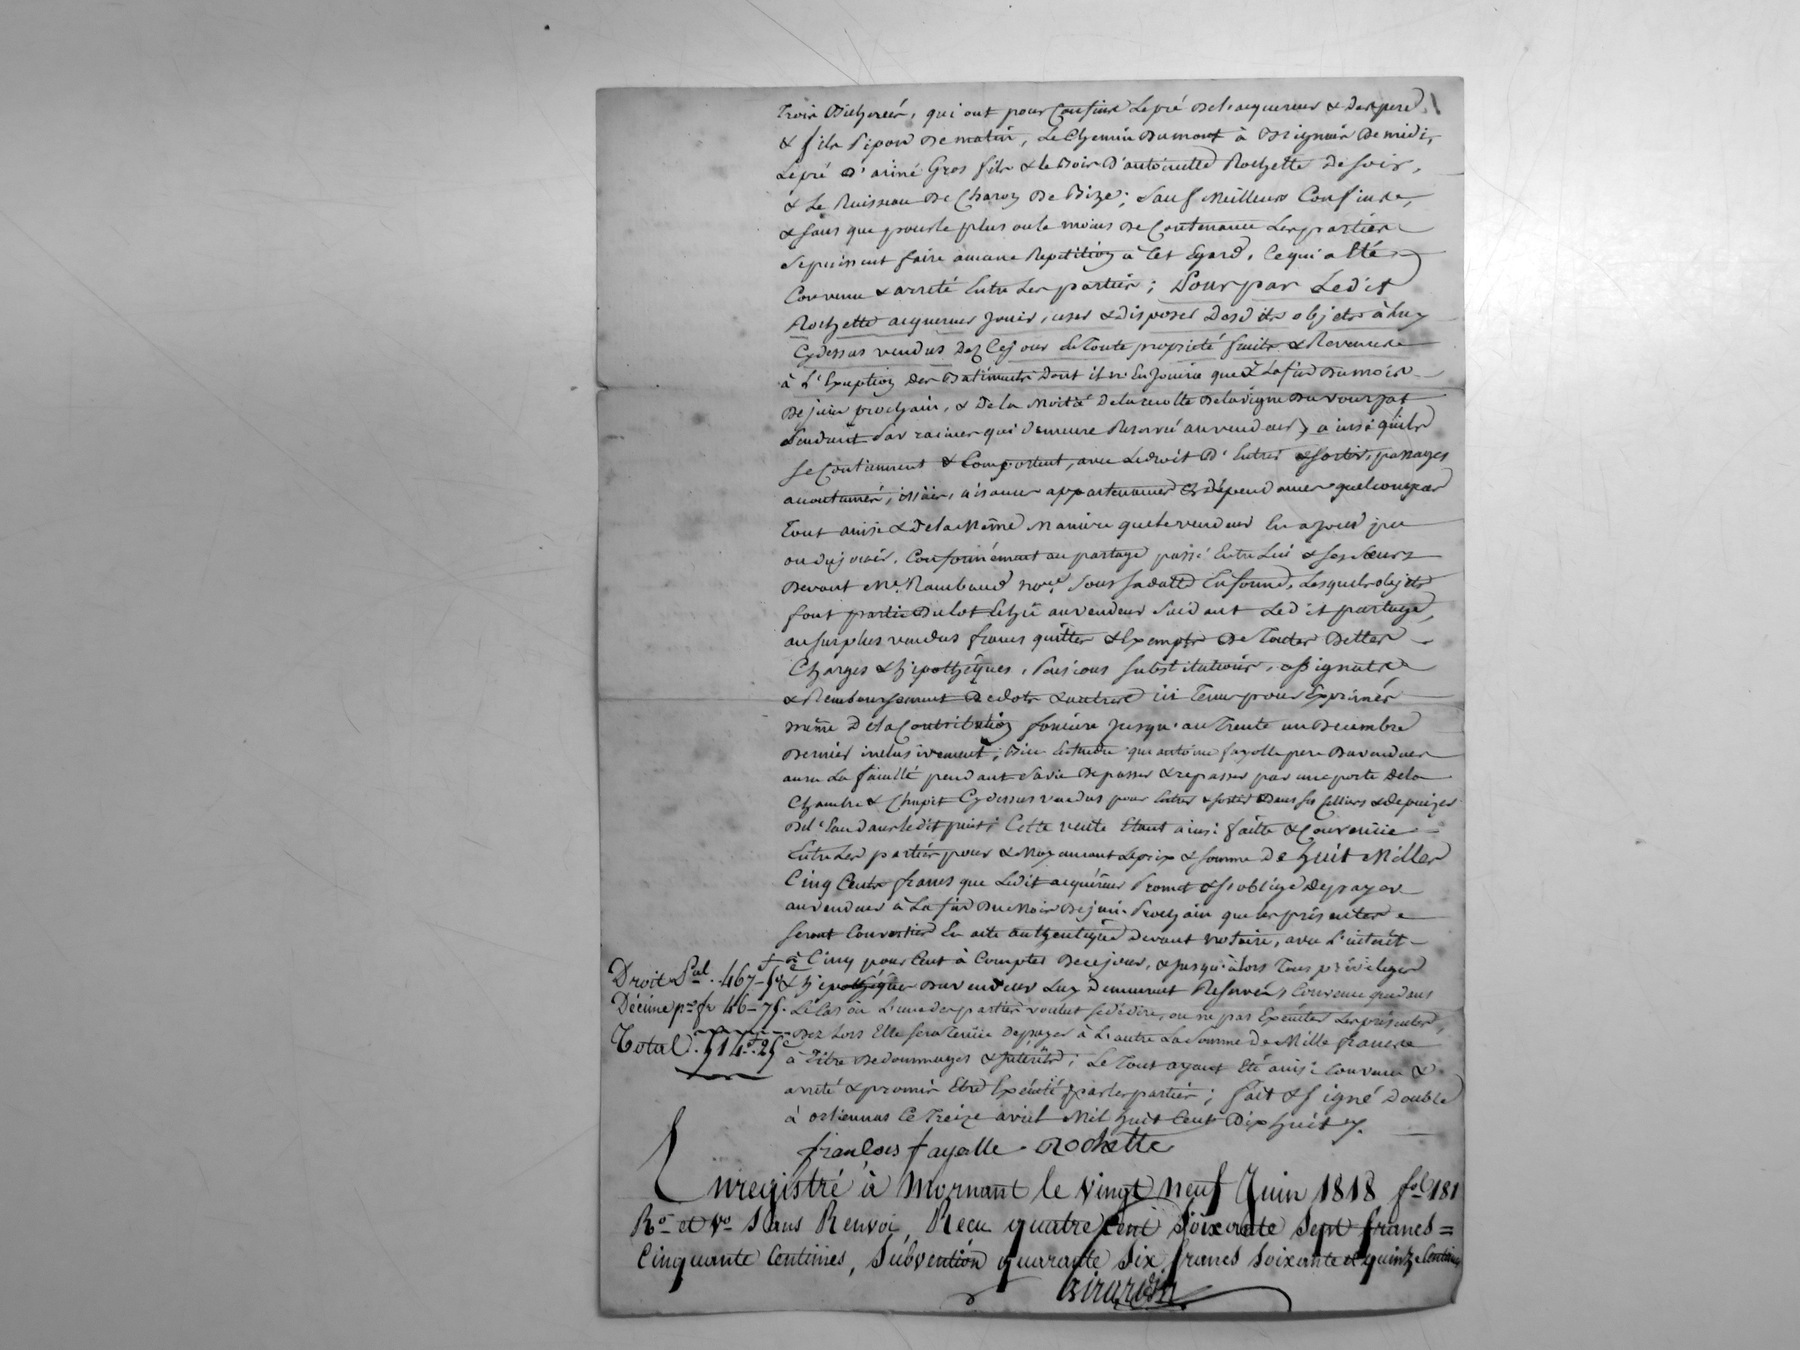 trois Bicherées, qui ont pour Confins Le pré de l'acquereur & des pere
& fils Pipon de matin, Le Chemin du mont à Brignais de midi,
Le pré d'aimé Gros fils & le Bois d'antoinette Rochette de soir,
& Le Ruisseau de Charoy de Bize; Sauf Meilleurs Confins,
& sans que pour le plus ou le moins de Contenance Les parties
se puissent faire aucune Repetition à Cet Egard, Ce qui a Eté
Convenu & arrêté Entre Les parties; Pour par Ledit
Rochette acquereur jouir, user & disposer Desdits objets à luy
Cydessus vendus Dez Cejour En Toute proprieté fruits & Revenus
à L'Exeption des Batiments Dont il n'En Jouira que à La fin du mois
De juin prochain, & De la Moitié De la recolte De la vigne du
Pendant Par racines qui demeure Reservé au vendeur, ainsi qu'ils
se Contiennent & Comportent, avec Le droit D'Entrer & sortir, passages
accoutumés, aisances appartenances & dépendances quelconques
Tout ainsi & De la Même Maniere que le vendeur En a joui pu
ou du jouir, Conformément au partage passé Entre Lui & ses Sœurs
Devant Me. Rambaud nore. sous sa datte En forme, Lesquels objets
font partie Du Lot Echu au vendeur Suivant Ledit partage,
au surplus vendus francs quittes & Exempts De Toutes Dettes
Charges & hipothèques, Pensions substitutions, assignats
& Remboursement De dots & autres ici Tenus pour Exprimés
même De la Contribution fonciere Jusqu'au Trente un Decembre
Dernier inclusivement; Bien Entendu que antoine fayolle pere Du vendeur
aura La faculté pendant Sa vie De passer & repasser par une porte de la
Chambre & Chapit Cydessus vendus pour Entrer & sortir Dans ses Celliers & de puiser
De l'Eau dans le dit puits; Cette vente Etant ainsi faitte & Convenüe
Entre Les parties pour & Moyennant Le prix & somme De huit Milles
Cinq Cents francs que Ledit acquéreur Promet & s'oblige De payer
au vendeur à La fin Du Mois De juin Prochain que les présentes
seront Converties En acte authentique devant notaire, avec L'intérêt
à Cinq pour Cent à Compter De ce jour, & jusqu'alors Tous privileges
& hipothèques Du vendeur Luy Demeurent Reservés Convenu que dans
Le Cas où L'une des parties voulut se dédire, ou ne pas Executer Les présentes,
Dez Lors Elle sera Tenüe De payer à L'autre La Somme De Mille francs
à Titre De dommages & interêts; Le Tout ayant Eté ainsi Convenu &
arrêté & promis Etre Exécuté par les parties; fait & signé Double
à orliennas Ce Treize avril Mil huit Cent Dix huit.
francois fayolle Rochette
Droit Pal. 467 f 50
Décime pr fr 46 - 75
Total. 514 f 25 c
Enregistré à Mornant le vingt neuf Juin 1818 fol 181
Ro et Vo sans Renvoi, Recu quatre cent soixante sept francs =
Cinquante Centimes, Subvention quarante six francs soixante et quinze Centimes
Girardin